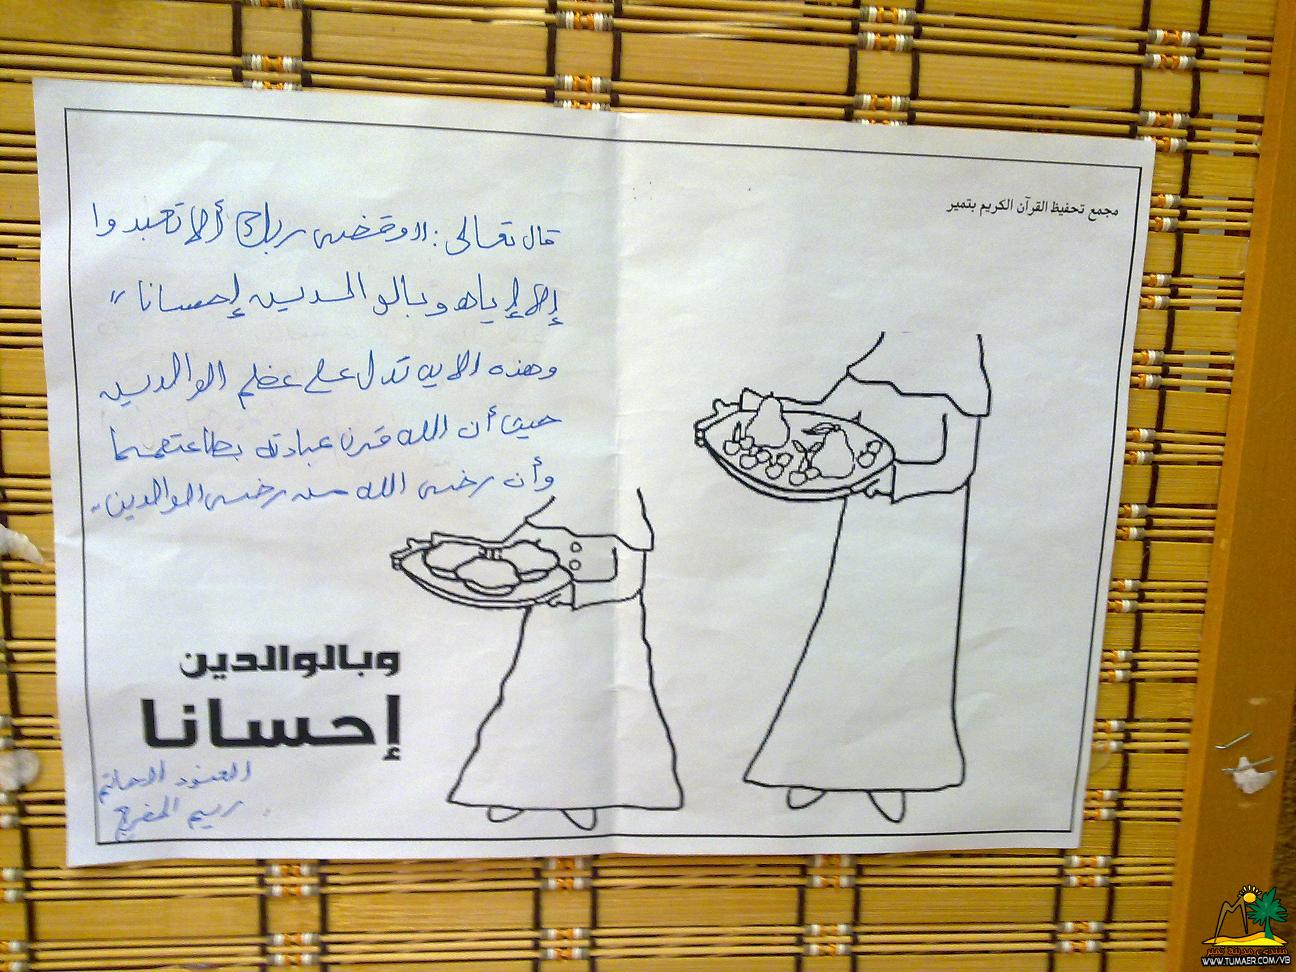 مجمع تحفيظ القرآن الكريم بتمير
قال تعالى: "وقضى ربك ألا تعبدوا
إلا إياه وبالوالدين إحسانا"
وهذه الايه تدل على عظم الوالدين
حيث أن الله قرن عبادته بطاعتهما
وأن رضى الله من رضى الوالدين.
وبالوالدين
إحسانا
العنود الحاتم
ريم المفرج
منتدى مدينة تمير
WWW.TUMAER.COM/VB